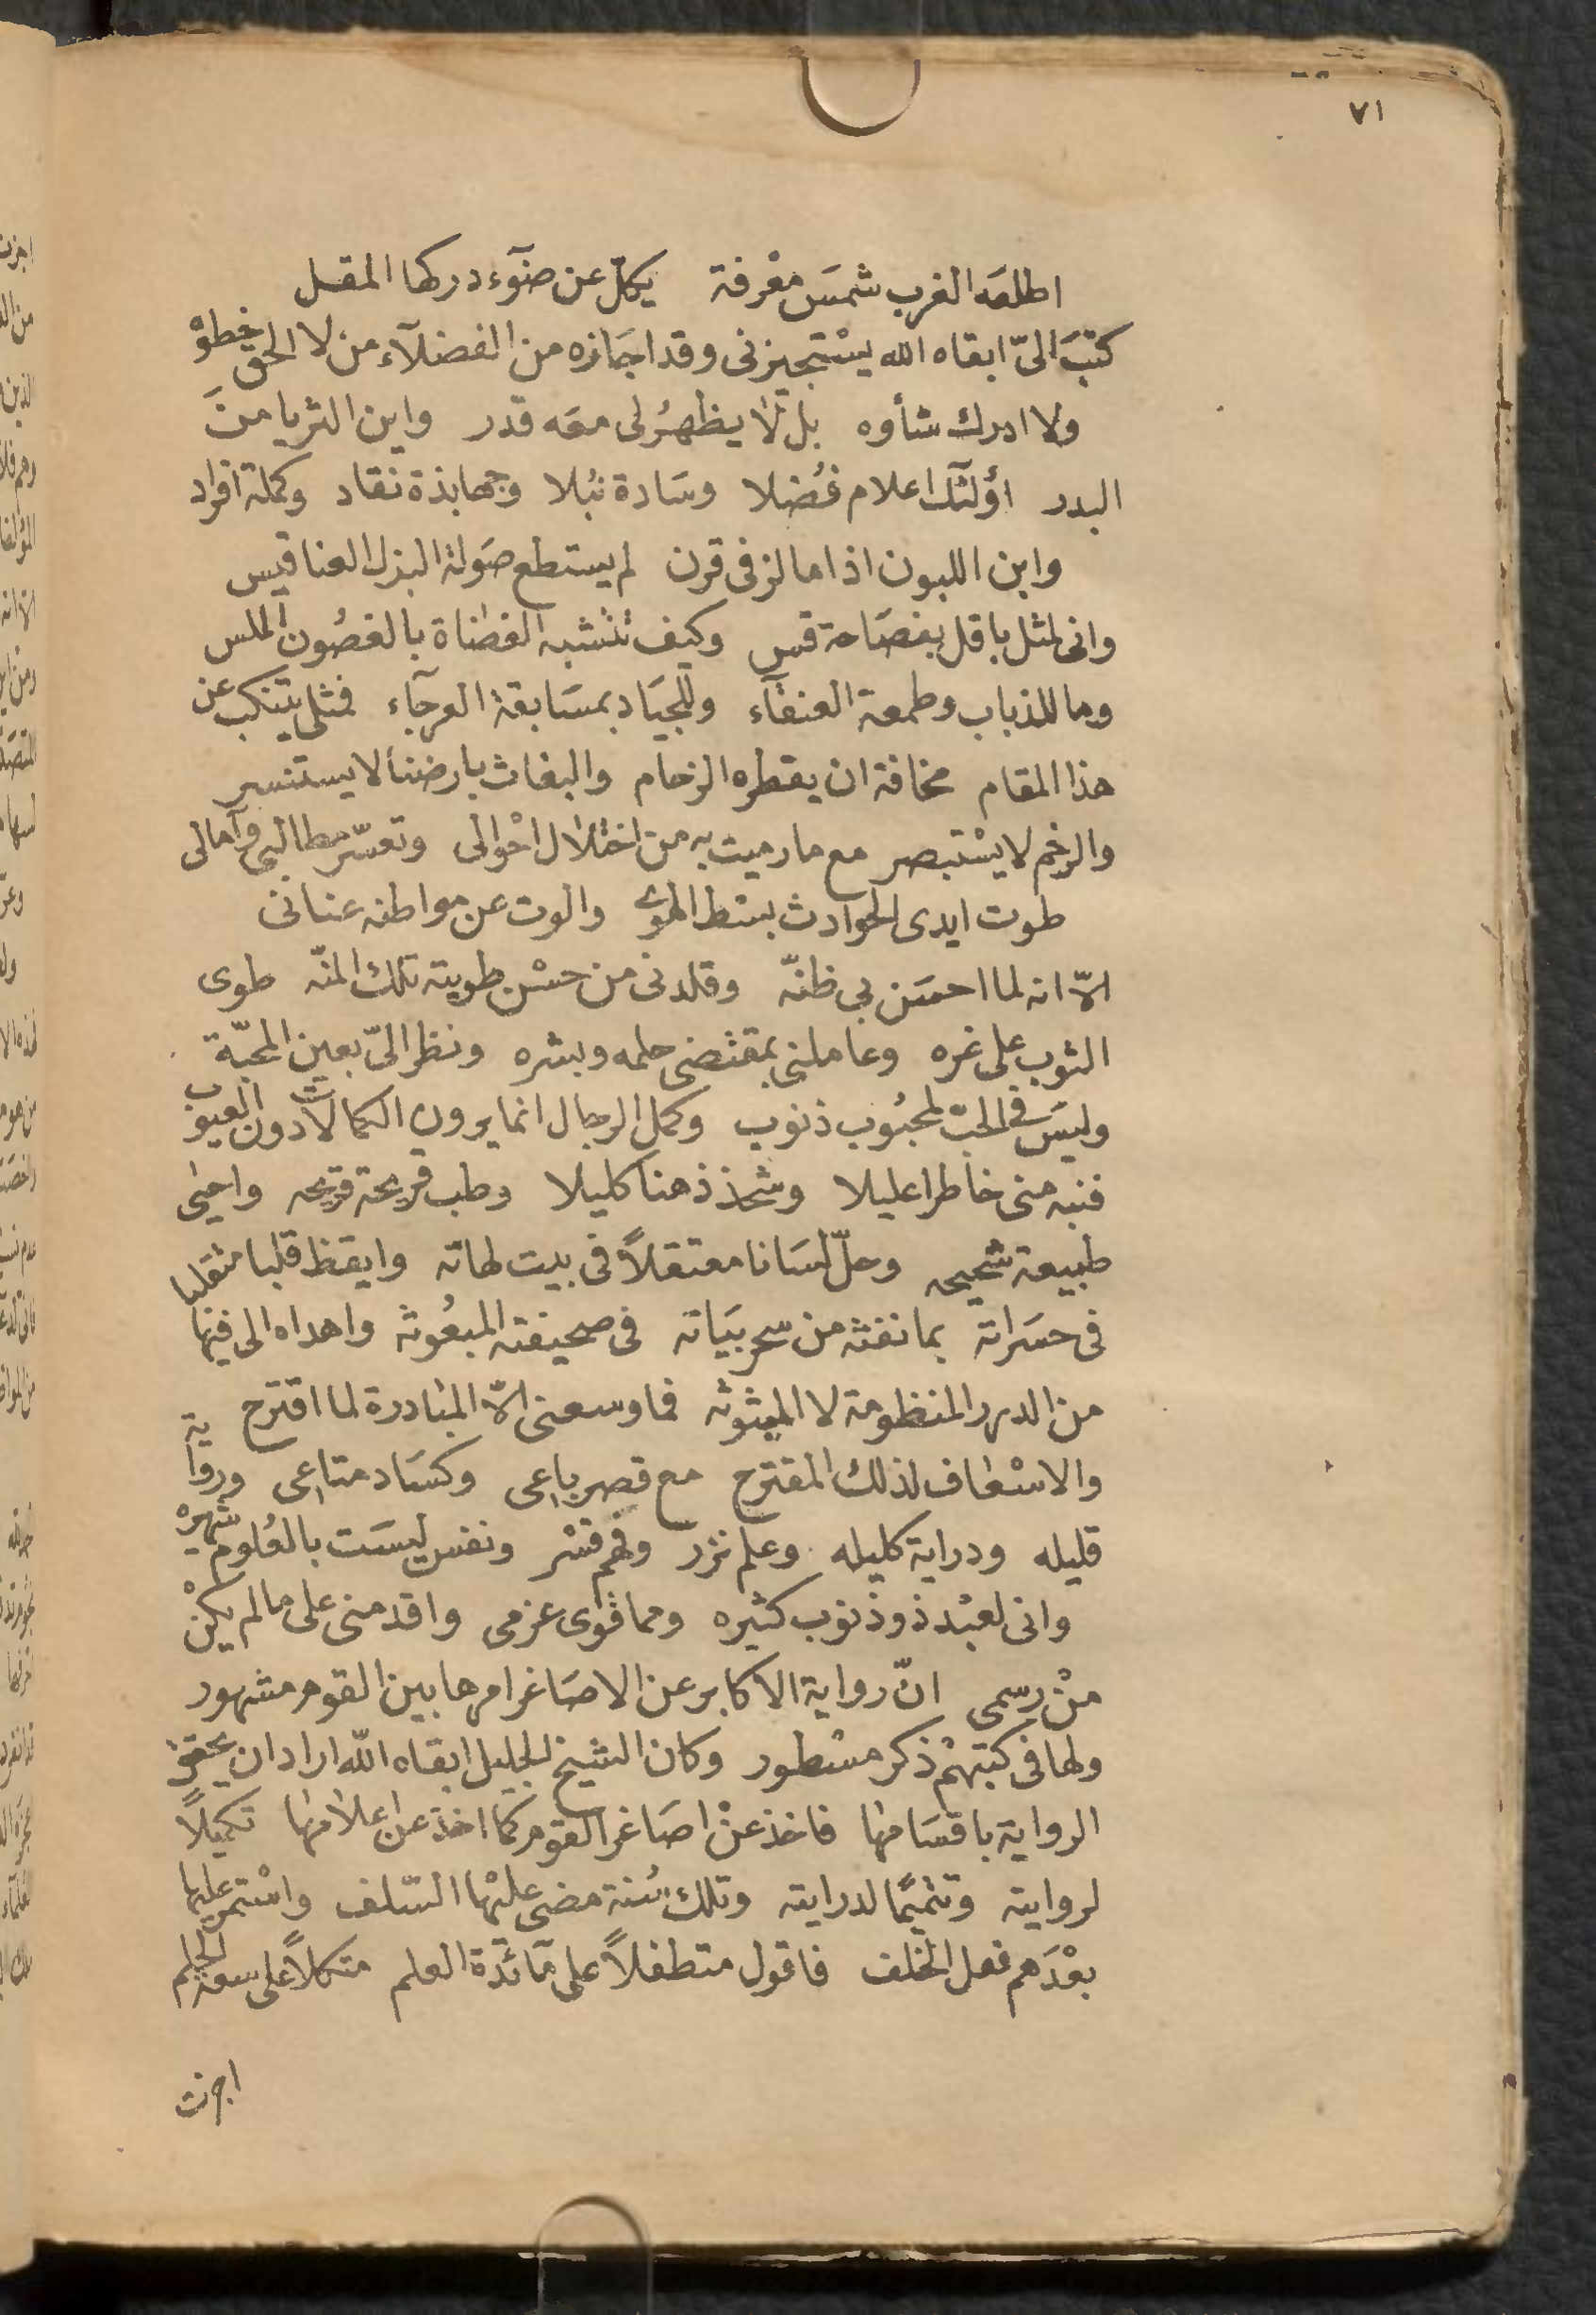 ٧١
اطلعَه الغرب شمسَ معْرفة يكلّ عن ضوٓء دركها المقل
كتبَ الىّ ابقاه الله يسْتجيزنى وقد اجَازه من الفضلآء من لا الحق خطوْ
ولا ادرك شأوه بل لا يظهرُ لى معَه قدر واين الثريا منَ
البدر اؤلٓئك اعلام فُضلا وسَادة نبُلا وجهابذة نقاد وكملة افراد
وابن اللبون اذا ما لز فى قرن لم يستطع صَولة البزل القناعيس
وانى لمثل باقل بفصَاحة قس وكيف تتشبه الغضاة بالغصُون الملس
وما للذباب وطعمة العنقآء وللجيَاد بمسَابقة العرجآء فمثلى يتنكب عن
هذا المقام مخافة ان يقطره الزحام والبغاث بارضنا لا يستنسر
والرخم لا يسْتبصر مع ما رميت به من اختلال احْوالى وتعسّر مطالبى وآمالى
طوت ايدى الحوادث بسَط الهوى والوت عن مواطنه عنانى
الاّ انه لما احسَن بى ظنّه وقلدنى من حسْن طويته تلك المنّه طوى
الثوب على غره وعاملنى بمقتضى حلمه وبشره ونظر الىّ بعين المحبّة
وليسَ فى الحبّ لمحبُوب ذنوب وكمل الرجال انما يرون الكمالات دون العيوب
فنبه منى خاطرا عليلا وشحذ ذهنا كليلا وطب قريحة قريحه واحيى
طبيعة شحيحه وحلّ لسَانا معتقلاً فى بيت لهاته وايقظ قلبا متقلبا
فى حسَراته بما نفثه من سحر بيَانه فى صحيفته المبعُوثه واهداه الى فيها
من الدرر المنظومة لا المبثوثه فما وسعنى الاّ المبادرة لما اقترح
والاسْعاف لذلك المقترح مع قصر باعى وكسَاد متاعى ورواية
قليله ودراية كليله وعلم نزر وفهم قسْر ونفس ليسَت بالعُلوم شهيره
وانى لعبْد ذو ذنوب كثيره ومما قوى عزمى واقدمنى على ما لم يكنْ
منْ رسمى انّ رواية الاكابر عن الاصَاغر امرها بين القوم مشهور
ولها فى كتبهمْ ذكر مسْطور وكان الشيخ الجليل ابقاه الله اراد ان يحقق
الرواية باقسَامها فاخذ عنْ اصَاغر القوم كما اخذ عن اعلامها تكميلاً
لروايته وتتميمًا لدرايته وتلك سُنة مضى عليْها السّلف واسْتمر عليها
بعْدَهم فعل الخلف فاقول متطفلاً على مآئدة العلم متكلاً على سعة الحلم
اجزت